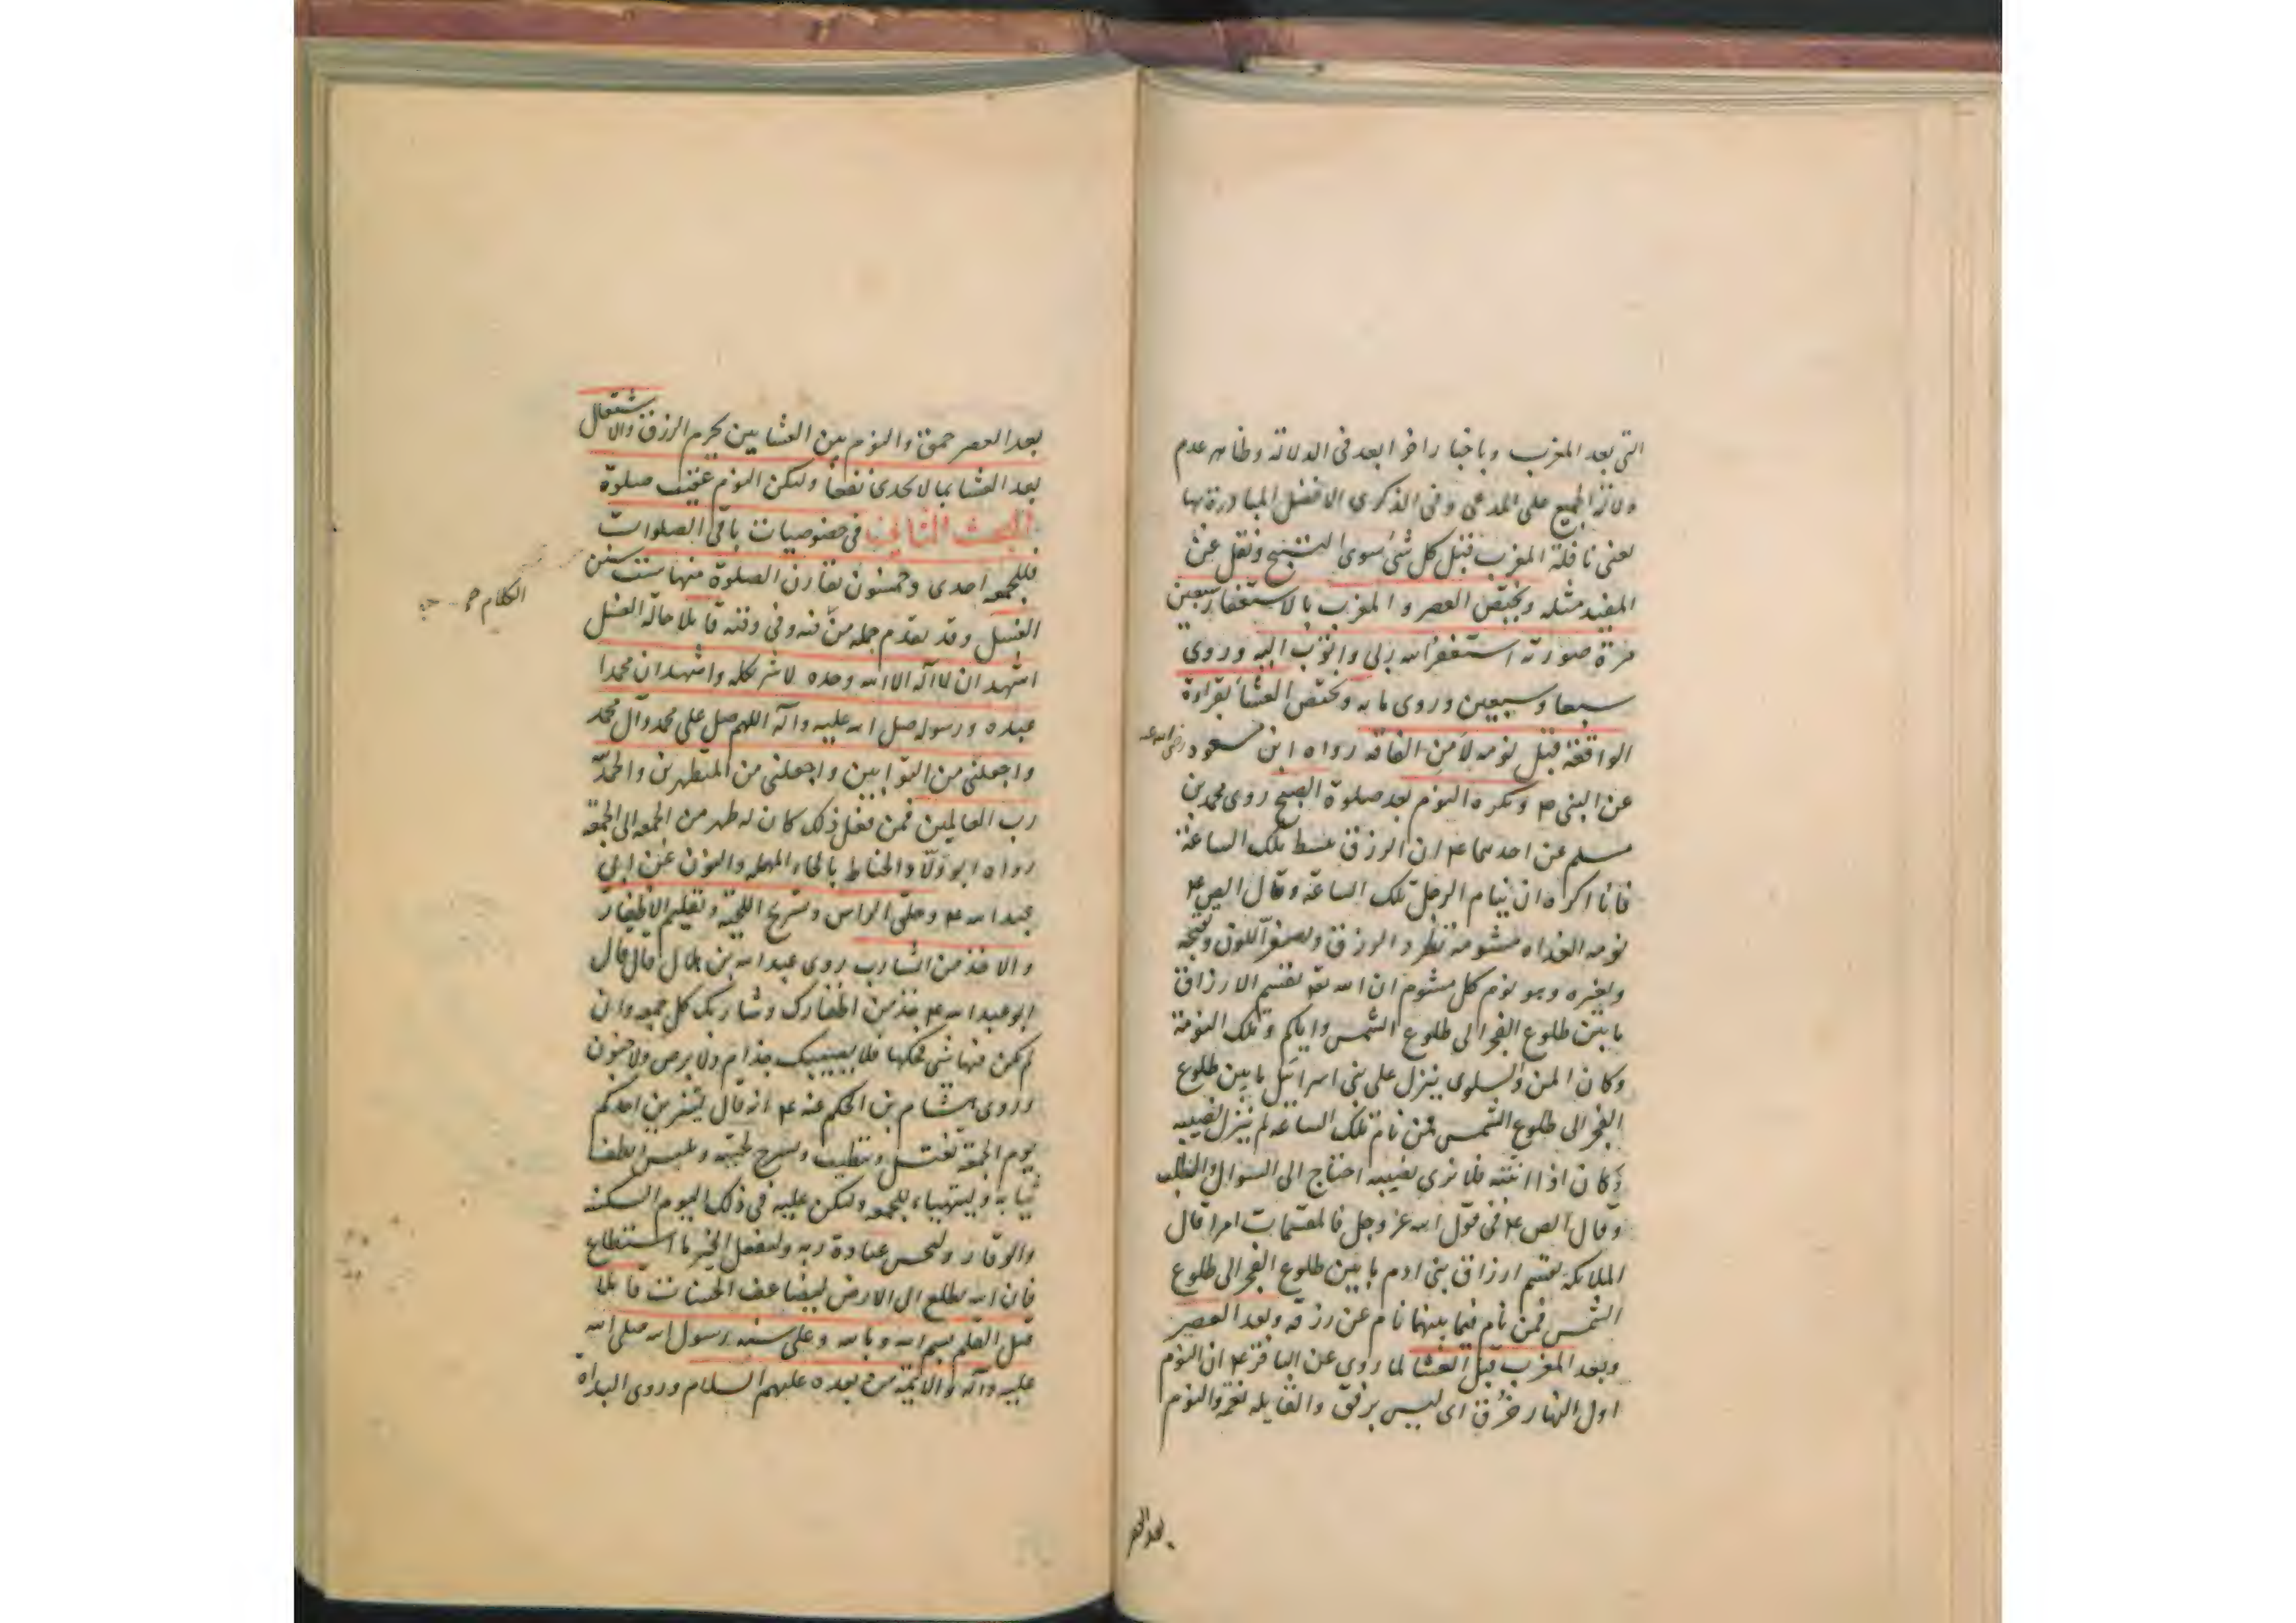 التى بعد المغرب وباخبار اخر ابعد فى الدلالة وظاهر عدم
دلالة الجميع على المدعى وفى الذكرى الافضل المبادرة بها
يعنى نافلة المغرب قبل كل شئ سوى التسبيح ونقل عن
المفيد مثله ويختص العصر والمغرب بالاستغفار سبعين
مرة صورته استغفر الله ربى واتوب اليه وروى
سبعا وسبعين وروى مايه ويختص العشا بقراءة
الواقعة قبل نومه لامن الفاقه رواه ابن مسعود رضى الله عنه
عن النبى ص ويكره النوم بعد صلوة الصبح روى محمد بن
مسلم عن احدهما ع ان الرزق يبسط تلك الساعة
فانا اكره ان ينام الرجل تلك الساعة وقال الص ع
نومه الغداه مشومة تطرد الرزق وتصفر اللون وتقبحه
وتغيره وهو نوم كل مشوم ان الله تع يقسم الارزاق
ما بين طلوع الفجر الى طلوع الشمس واياكم وتلك النومة
وكان المن والسلوى ينزل على بنى اسرائيل ما بين طلوع
الفجر الى طلوع الشمس فمن نام تلك الساعة لم ينزل نصيبه
وكان اذا انتبه فلا يرى نصيبه احتاج الى السوال والطلب
وقال الص ع فى قول الله عز وجل فالمقسمات امرا قال
الملائكة تقسم ارزاق بنى ادم ما بين طلوع الفجر الى طلوع
الشمس فمن نام فيما بينهما نام عن رزقه وبعد العصر
وبعد المغرب قبل العشا لما روى عن الباقر ع ان النوم
اول النهار خرق اى ليس برفق والقايله نعم والنوم
بعد العصر
بعد العصر حمق والنوم بين العشايين يحرم الرزق والاشتغال
بعد العشا بما لا يجدى نفعا وليكن النوم عقيب صلوة
البحث الثانى فى خصوصيات باقى الصلوات
فللجمعه احدى وخمسون تقارن الصلوة منها ست سنن
الغسل وقد تقدم جمله من فنه وفى وقته قايلا حالة الغسل
اشهد ان لا اله الا الله وحده لا شريك له واشهد ان محمدا
عبده ورسوله صلى الله عليه واله اللهم صل على محمد وآل محمد
واجعلنى من التوابين واجعلنى من المتطهرين والحمد لله
رب العالمين فمن فعل ذلك كان له طهر من الجمعه الى الجمعة
رواه ابو ولاد الحناط بالحاء المهمله والنون عن ابى
عبد الله ع وحلق الراس وتسريح اللحية وتقليم الاظفار
والاخذ من الشارب روى عبد الله بن هلال قال قال
ابو عبد الله ع خذ من اظفارك وشاربك كل جمعه وان
لم يكن فيها شى فحكها فلا يصيبك جذام ولا برص ولا جنون
وروى هشام بن الحكم عنه ع انه قال ليتزين احدكم
يوم الجمعة يغتسل ويتطيب ويسرح لحيته ويلبس انظف
ثيابه وليتهيا للجمعه وليكن عليه فى ذلك اليوم السكينه
والوقار وليحسن عبادة ربه وليفعل الخير ما استطاع
فان الله يطلع الى الارض ليضاعف الحسنات قايلا
قبل القلم بسم الله وبالله وعلى سنه رسول الله صلى الله
عليه وآله والائمة من بعده عليهم السلام وروى البداة
الكلام